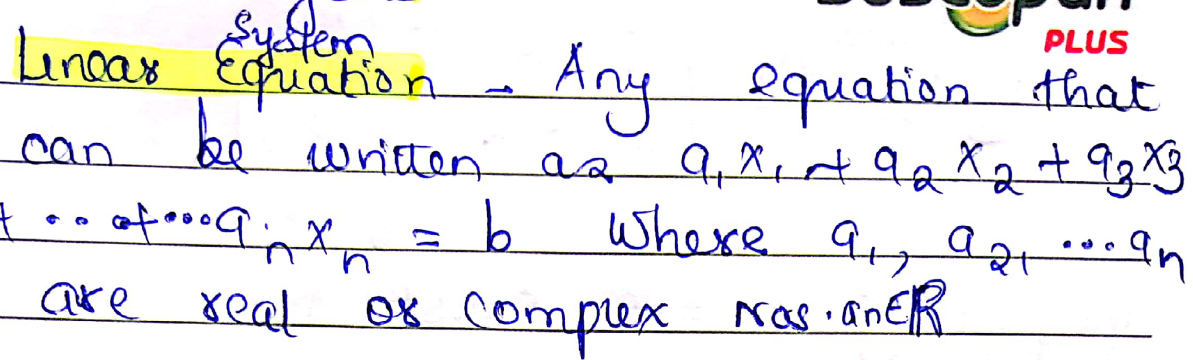 PLUS
System
Linear Equation - Any equation that
can be written as a₁x₁ + a₂x₂ + a₃x₃
+ .. + ... aₙxₙ = b where a₁, a₂, ... aₙ
are real or complex nos. an∈R